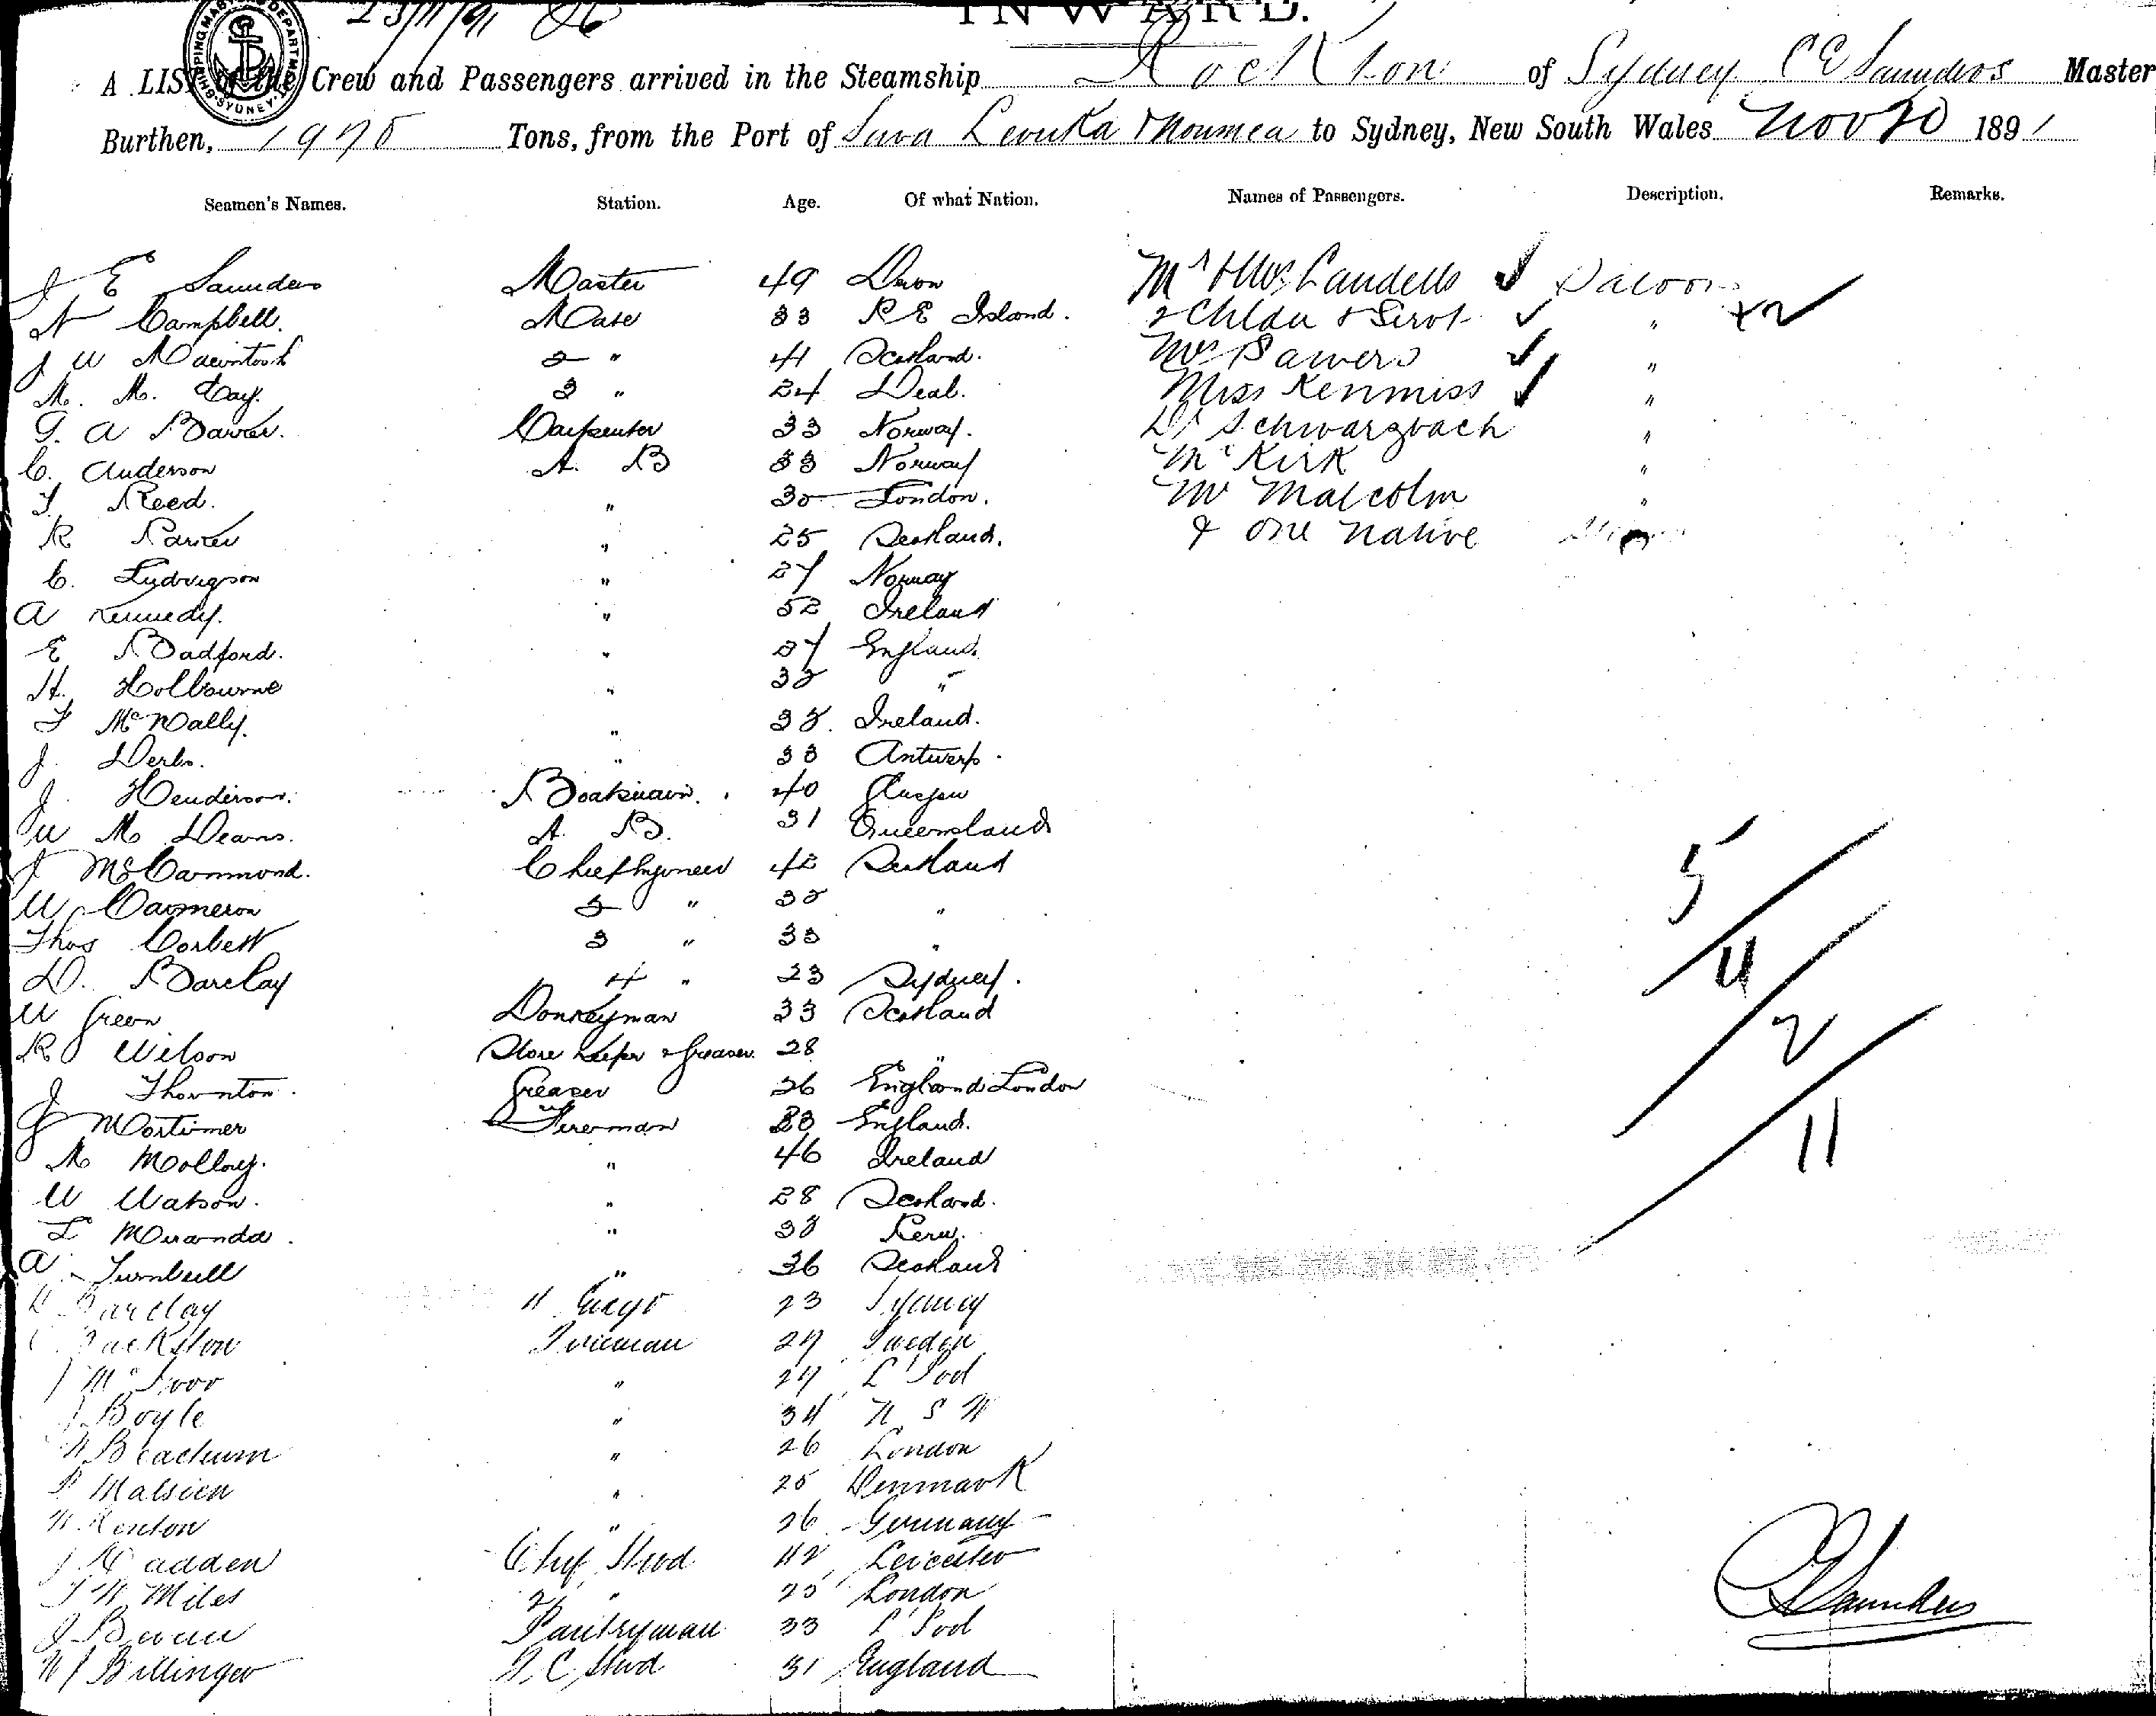 23/11/91
INWARD.
SHIPPING MASTER'S DEPARTMENT SYDNEY
A LIST of the Crew and Passengers arrived in the Steamship Rockton of Sydney C E Saunders Master
Burthen, 1970 Tons, from the Port of Suva Levuka & Noumea to Sydney, New South Wales Nov 20 1891
Seamen's Names. Station. Age. Of what Nation. Names of Passengers. Description. Remarks.
J E Saunders Master 49 Devon Mr & Mrs Landells Saloon
N Campbell. Mate 33 P E Island. 2 Childn & Servt " +2
J W Macintosh 2 " 41 Scotland. Mrs Sawers "
M. M. Day. 3 " 24 Deal. Miss Kenmiss "
G. A Barker. Carpenter 33 Norway. Dr Schwarzbach "
C. Anderson A. B 33 Norway Mr Kirk "
Reed. " 30 London. Mr Malcolm "
R Parker " 25 Scotland. & one native
C. Ludvigson " 27 Norway
A Kennedy. " 52 Ireland
E Badford. " 27 England
H. Holbourne " "
McNally. " Ireland.
J. Derbs. " 33 Antwerp.
J. Henderson. Boatswain. 40 Glasgow
W M Deans. A. B. 31 Queensland
J McCammond. Chief Engineer 42 Scotland
W Cammeron 2 " "
Thos Corbett 3 " 33 "
D. Barclay 4 " 23 Sydney.
W Green Donkeyman 33 Scotland
R Wilson Store Keeper & Greaser 28 "
J Thornton. Greaser 26 England London
J Mortimer Fireman England.
M Molloy. " 46 Ireland
W Watson. " 28 Scotland.
L Miranda. " 33 Peru.
A Turnbull " 36 Scotland
Barclay 4 Engr 23 Sydney
Jackston Fireman 27 Sweden
J McIvor " 27 L'Pool
J Boyle " 34 N S W
W Beachum " 26 London
P Malsien " 25 Denmark
W. Kenton " 26 Germany
J Madden Chief Stwd 42 Leicester
T W Miles 2 " 25 London
J Bevan Pantryman 33 L'Pool
W J Billinger F. C. Stwd 31 England
5/4/2/11
C E Saunders